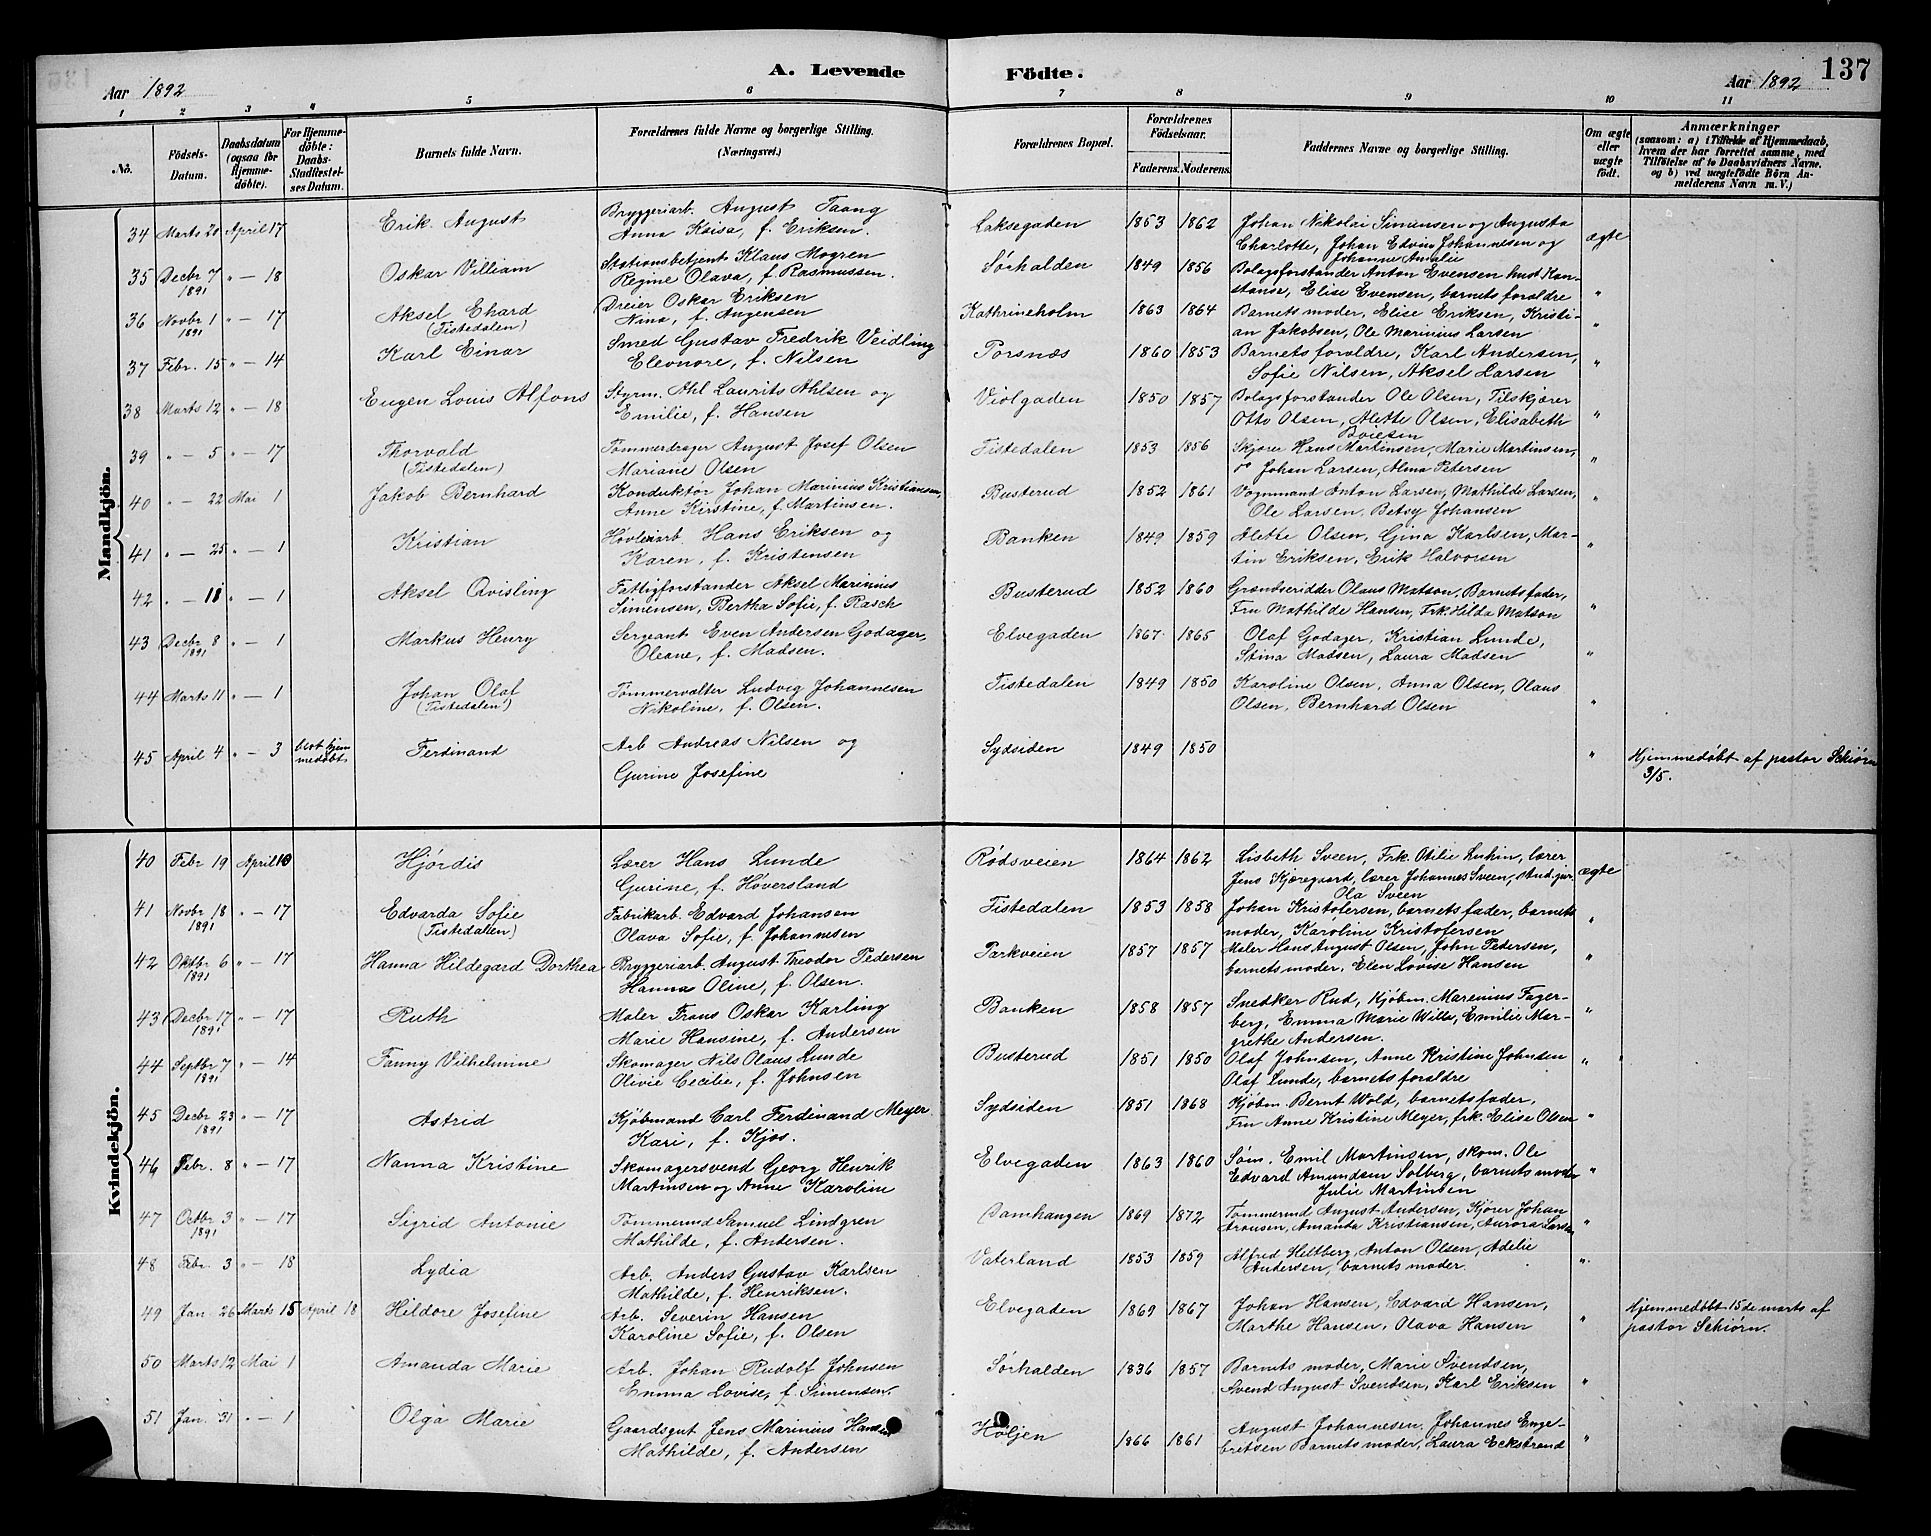 A. Levende Födte. 137
Aar 1892 Aar 1892
1 2 3 4 5 6 7 8 9 10 11
No.
Födsels-Datum.
Daabsdatum (ogsaa for Hjemmedöbte).
For Hjemmedöbte: Daabs-Stadfæstelses Datum.
Barnets fulde Navn.
Forældrenes fulde Navne og borgerlige Stilling. (Næringsvei.)
Forældrenes Bopæl.
Forældrenes Födselsaar. Faderens. Moderens.
Faddernes Navne og borgerlige Stilling.
Om ægte eller uægte födt.
Anmærkninger (saasom: a) i Tilfælde af Hjemmedaab, hvem der har forrettet samme, med Tilföielse af to Daabsvidners Navne, og b) ved uægtefödte Börn Anmelderens Navn m. V.)
Mandkjön.
34 Marts 20 April 17 Erik August Bryggeriarb. August Taang Laksegaden 1853 1862 Johan Nikolai Simensen og Augusta ægte
Anna Kaisa, f. Eriksen. Charlotte, Johan Edvin Johannesen og
Johanne Amalie
35 Decbr 7 " — 18 Oskar Villiam Stationsbetjent Klaus Mogren Sørhalden 1849 1856 Bolagsforstander Anton Evensen hust Kon- "
1891 Regine Olava, f. Rasmussen. stanse, Elise Evensen, barnets forældre
36 Novbr 1 " — 17 Aksel Ehard Dreier Oskar Eriksen Kathrineholm 1863 1864 Barnets moder, Elise Eriksen, Kristi- "
1891 (Tistedalen) Nina, f. Angensen an Jakobsen, Ole Marinius Larsen
37 Febr. 15 " — 14 Karl Einar Smed Gustav Fredrik Veidling Torsnæs 1860 1853 Barnets forældre, Karl Andersen, "
Eleonore, f. Nilsen Sofie Nilsen, Aksel Larsen
38 Marts 12 " — 18 Eugen Louis Alfons Styrm. Ahl Laurits Ahlsen og Violgaden 1850 1857 Bolagsforstander Ole Olsen, Tilskjærer "
Emilie, f. Hansen Otto Olsen, Alette Olsen, Elisabeth
Boiesen
39 " — 5 " — 17 Thorvald Tømmerdrager August Josef Olsen Tistedalen 1853 1856 Skjører Hans Martinsen, Marie Martinsen, "
(Tistedalen) Mariane Olsen do Johan Larsen, Alma Petersen
40 " — 22 Mai 1 Jakob Bernhard Konduktør Johan Marinius Kristiansen, Busterud 1852 1861 Vognmand Anton Larsen, Mathilde Larsen, "
Anne Kirstine, f. Martinsen. Ole Larsen, Betsy Johansen
41 " — 25 " — 1 Kristian Høvleriarb. Hans Eriksen og Banken 1849 1859 Alette Olsen, Gina Karlsen, Mar- "
Karen, f. Kristensen tin Eriksen, Erik Halvorsen
42 " — 18 " — 1 Aksel Qvisling Fattigforstander Aksel Marinius Busterud 1852 1860 Grændseridder Olaus Matson, Barnets fader, "
Simensen, Bertha Sofie, f. Rasch Fru Mathilde Hansen, Frk. Hilda Matson
43 Decbr 8 " — 1 Markus Henry Sergeant Even Andersen Godager, Elvegaden 1867 1865 Olaf Godager, Kristian Lunde, "
1891 Oleane, f. Madsen. Stina Madsen, Laura Madsen
44 Marts 11 " — 1 Johan Olaf Tømmervalter Ludvig Johannesen Tistedalen 1849 1850 Karoline Olsen, Anna Olsen, Olaus "
(Tistedalen) Nikoline, f. Olsen. Olsen, Bernhard Olsen
45 April 4 " — 3 blot hjem Ferdinand Arb Andreas Nilsen og Sydsiden 1849 1850 " Hjemmedøbt af pastor Schiørn
medøbt Gurine Josefine 3/5.
Kvindekjön.
40 Febr 19 April 10 Hjørdis Lærer Hans Lunde Rødsveien 1864 1862 Lisbeth Sveen, Frk. Otilie Lukin, lærer ægte
Gurine, f. Høversland Jens Kjærgaard, lærer Johannes Sveen, stud. jur.
Ola Sveen
41 Novbr 18 " — 17 Edvarda Sofie Fabrikarb. Edvard Johansen Tistedalen 1853 1858 Johan Kristofersen, barnets fader, barnets "
1891 (Tistedalen) Olava Sofie, f. Johannesen moder, Karoline Kristofersen
42 Oktbr 6 " — 17 Hanna Hildegard Dorthea Bryggeriarb. August Theodor Pedersen Parkveien 1857 1857 Maler Hans August Olsen, John Pedersen, "
1891 Hanna Oline, f. Olsen. barnets moder, Elen Lovise Hansen
43 Decbr 17 " — 17 Ruth Maler Frans Oskar Karling Banken 1858 1857 Snedker Rud, Kjøbm. Marenius Fager- "
1891 Marie Hansine, f. Andersen berg, Emma Marie Wille, Emilie Mar-
grethe Andersen.
44 Septbr 7 " — 14 Fanny Vilhelmine Skomager Nils Olaus Lunde Busterud 1851 1850 Olaf Johnsen, Anne Kristine Johnsen "
1891 Olivie Cecilie, f. Johnsen Olaf Lunde, barnets forældre
45 Decbr 23 " — 17 Astrid Kjøbmand Carl Ferdinand Meyer Sydsiden 1851 1868 Kjøbm. Bernt Wold, barnets fader, "
1891 Kari, f. Kjos. Fru Anne Kristine Meyer, frk. Elise Olsen
46 Febr. 8 " — 17 Nanna Kristine Skomagersvend Georg Henrik Elvegaden 1863 1860 Søm. Emil Martinsen, skom. Ole "
Martinsen og Anne Karoline Edvard Amundsen Solberg, barnets moder
Julie Martinsen
47 Octbr 3 " — 17 Sigrid Antonie Tømmermd Samuel Lindgren Damhaugen 1869 1872 Tømmermd August Andersen, Kjører Johan "
1891 Mathilde, f. Andersen. Arousen, Amanda Kristiansen, Aurora Larsen
48 Febr. 3 " — 18 Lydia Arb. Anders Gustav Karlsen Vaterland 1853 1859 Alfred Heltberg, Anton Olsen, Adelie "
Mathilde, f. Henriksen. Andersen, barnets moder.
49 Jan 26 Marts 15 April 18 Heldore Josefine Arb. Severin Hansen Elvegaden 1869 1867 Johan Hansen, Edvard Hansen, " Hjemmedøbt 15de marts af
Karoline Sofie, f. Olsen Marthe Hansen, Olava Hansen pastor Schiørn.
50 Marts 12 Mai 1 Amanda Marie Arb. Johan Rudolf Johnsen Sørhalden 1836 1857 Barnets moder, Marie Svendsen, "
Emma Lovise, f. Simensen. Svend August Svendsen, Karl Eriksen
51 Jan. 31 " — 1 Olga Marie Gaardsgut Jens Marinius Hansen Høljen 1866 1861 August Johannesen, Johannes Enge- "
Mathilde, f. Andersen bretsen Barnets moder, Laura Eckstrand